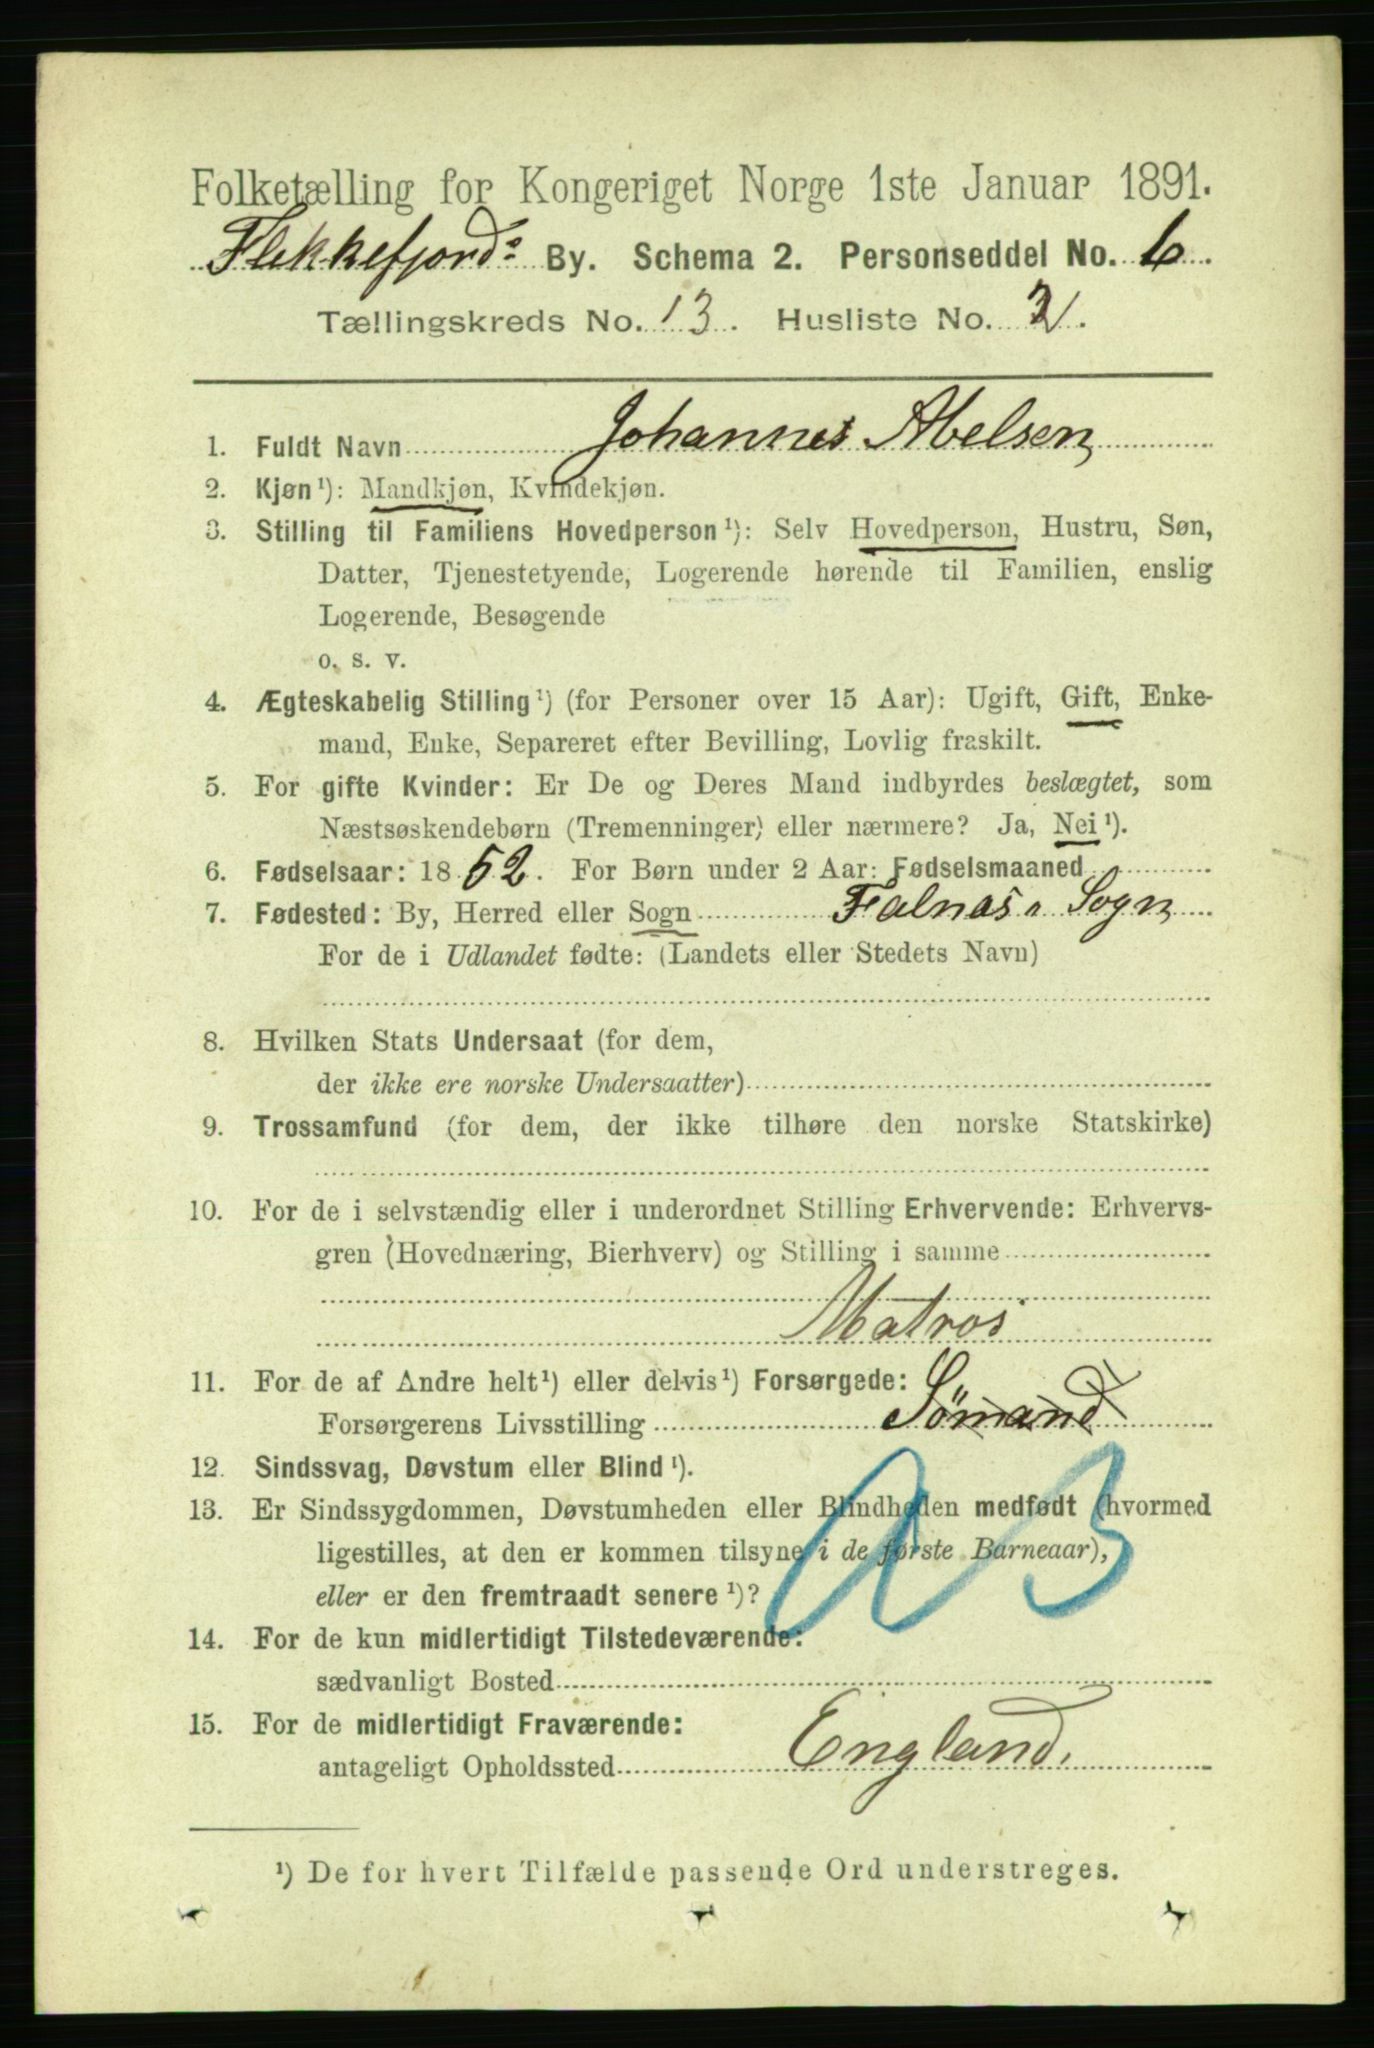 Folketælling for Kongeriget Norge 1ste Januar 1891.
Flekkefjords By. Schema 2. Personseddel No. 6.
Tællingskreds No. 13. Husliste No. 2.
1. Fuldt Navn Johannes Abelsen
2. Kjøn¹): Mandkjøn, Kvindekjøn.
3. Stilling til Familiens Hovedperson¹): Selv Hovedperson, Hustru, Søn,
Datter, Tjenestetyende, Logerende hørende til Familien, enslig
Logerende, Besøgende
o. s. v.
4. Ægteskabelig Stilling¹) (for Personer over 15 Aar): Ugift, Gift, Enke-
mand, Enke, Separeret efter Bevilling, Lovlig fraskilt.
5. For gifte Kvinder: Er De og Deres Mand indbyrdes beslægtet, som
Næstsøskendebørn (Tremenninger) eller nærmere? Ja, Nei¹).
6. Fødselsaar: 1852. For Børn under 2 Aar: Fødselsmaaned
7. Fødested: By, Herred eller Sogn Falnæs Sogn
For de i Udlandet fødte: (Landets eller Stedets Navn)
8. Hvilken Stats Undersaat (for dem,
der ikke ere norske Undersaatter)
9. Trossamfund (for dem, der ikke tilhøre den norske Statskirke)
10. For de i selvstændig eller i underordnet Stilling Erhvervende: Erhvervs-
gren (Hovednæring, Bierhverv) og Stilling i samme
Matros
11. For de af Andre helt¹) eller delvis¹) Forsørgede:
Forsørgerens Livsstilling Sömand
12. Sindssvag, Døvstum eller Blind¹).
13. Er Sindssygdommen, Døvstumheden eller Blindheden medfødt (hvormed
ligestilles, at den er kommen tilsyne i de første Barneaar),
eller er den fremtraadt senere¹)?
14. For de kun midlertidigt Tilstedeværende:
sædvanligt Bosted
15. For de midlertidigt Fraværende:
antageligt Opholdssted England.
¹) De for hvert Tilfælde passende Ord understreges.